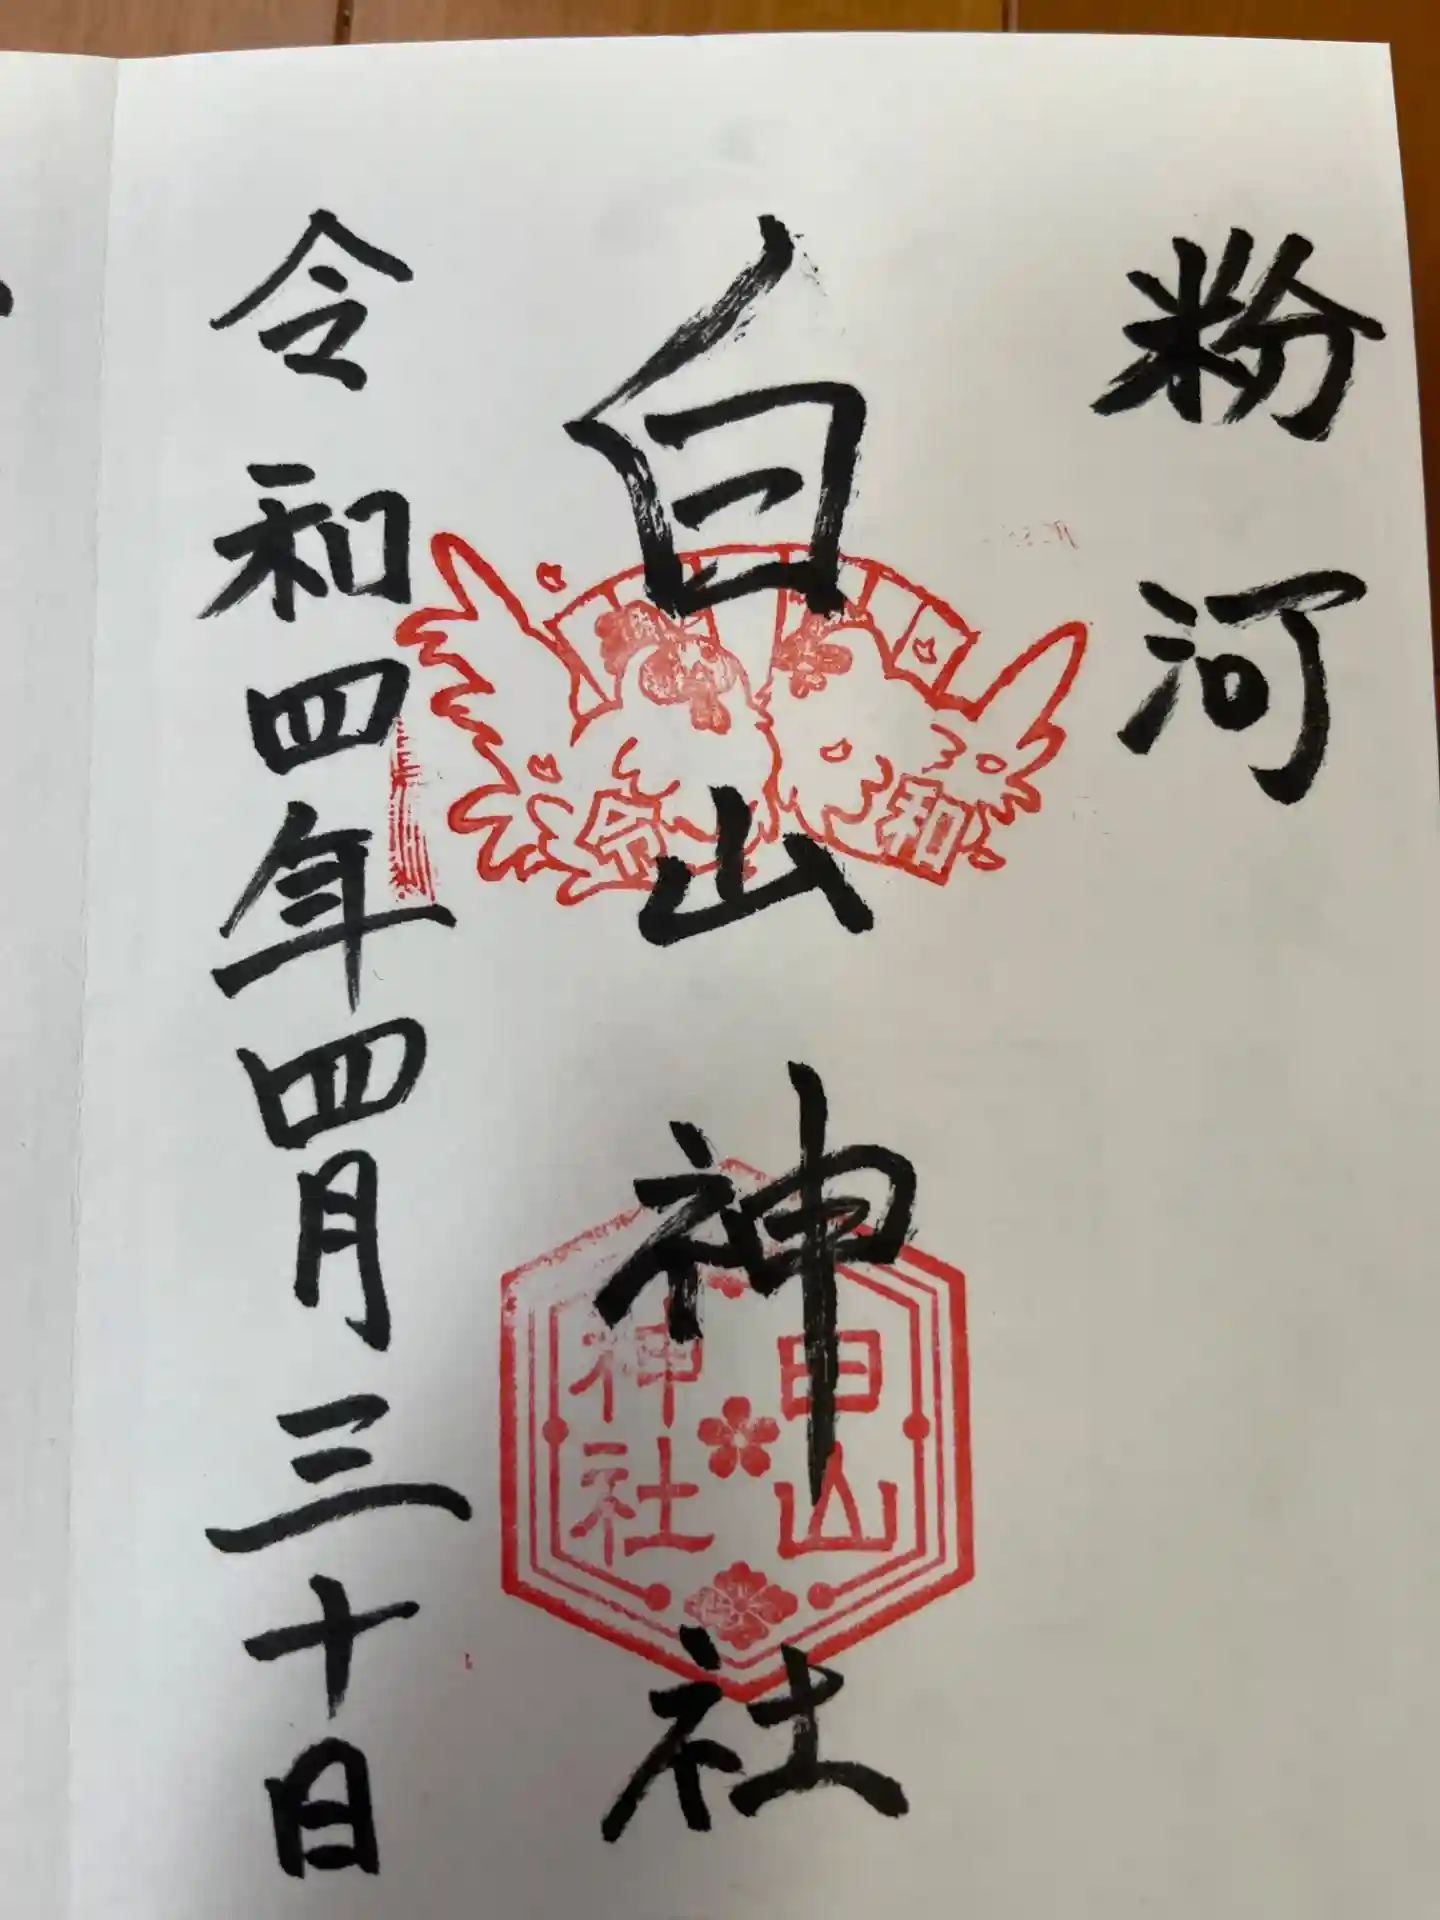 粉河
白山神社
令和
白山
神社
令和四年四月三十日